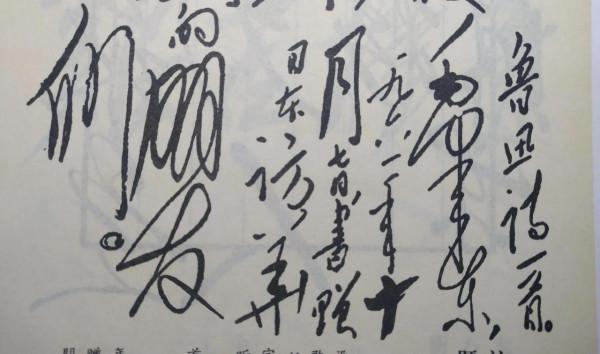 鲁迅诗一首。
毛泽东，
一九六一年十
月七日書赠
日本访華
的朋友
們。